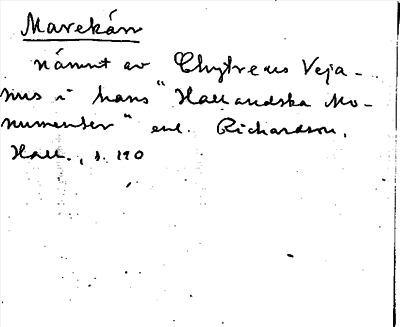 Marekån
nämnt av Chytreus Veja-
nus i hans "Hallandska Mo-
numenter" enl. Richardson,
Hall., s. 120